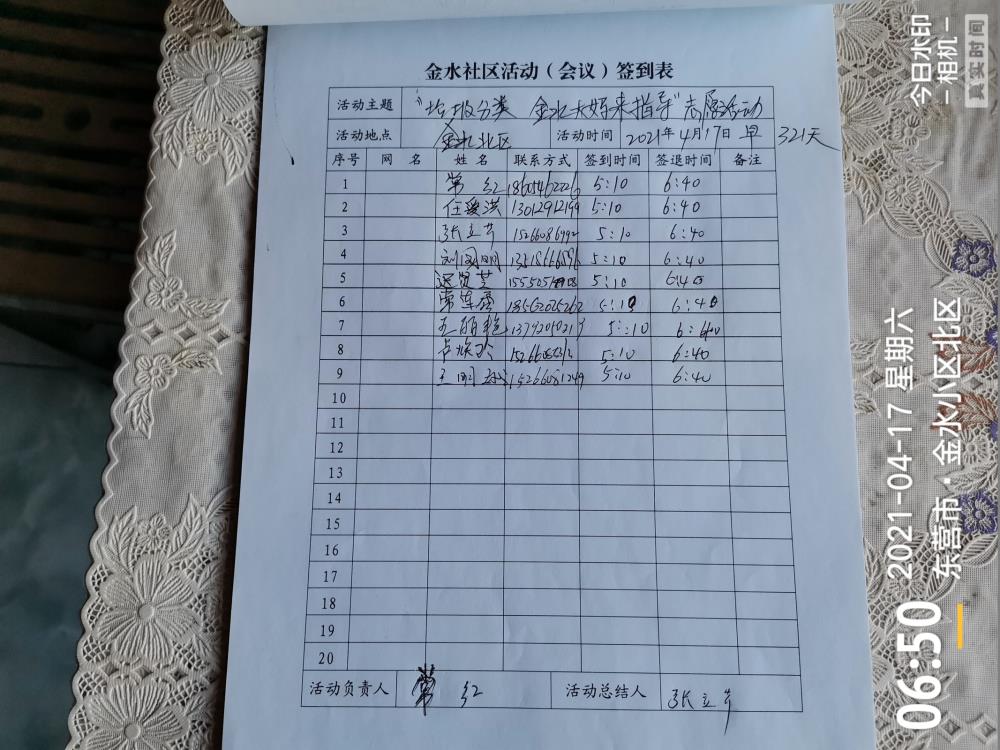 金水社区活动（会议）签到表
活动主题 "垃圾分类 金水大妈来指导"志愿活动
活动地点 金水北区 活动时间 2021年4月17日 早 321天
序号 网 名 姓 名 联系方式 签到时间 签退时间 备注
1 常 红 18605462226 5:10 6:40
2 任爱洪 13012912199 5:10 6:40
3 张立芹 15266086992 5:10 6:40
4 刘国明 5:10 6:40
5 5:10 6:40
6 18562025262 5:10 6:40
7 王丽艳 5:10 6:40
8 5:10 6:40
9 王明 15266081249 5:10 6:40
10
11
12
13
14
15
16
17
18
19
20
活动负责人 常 红 活动总结人 张立芹
今日水印
-相机-
真实时间
06:50 2021-04-17 星期六
东营市·金水小区北区